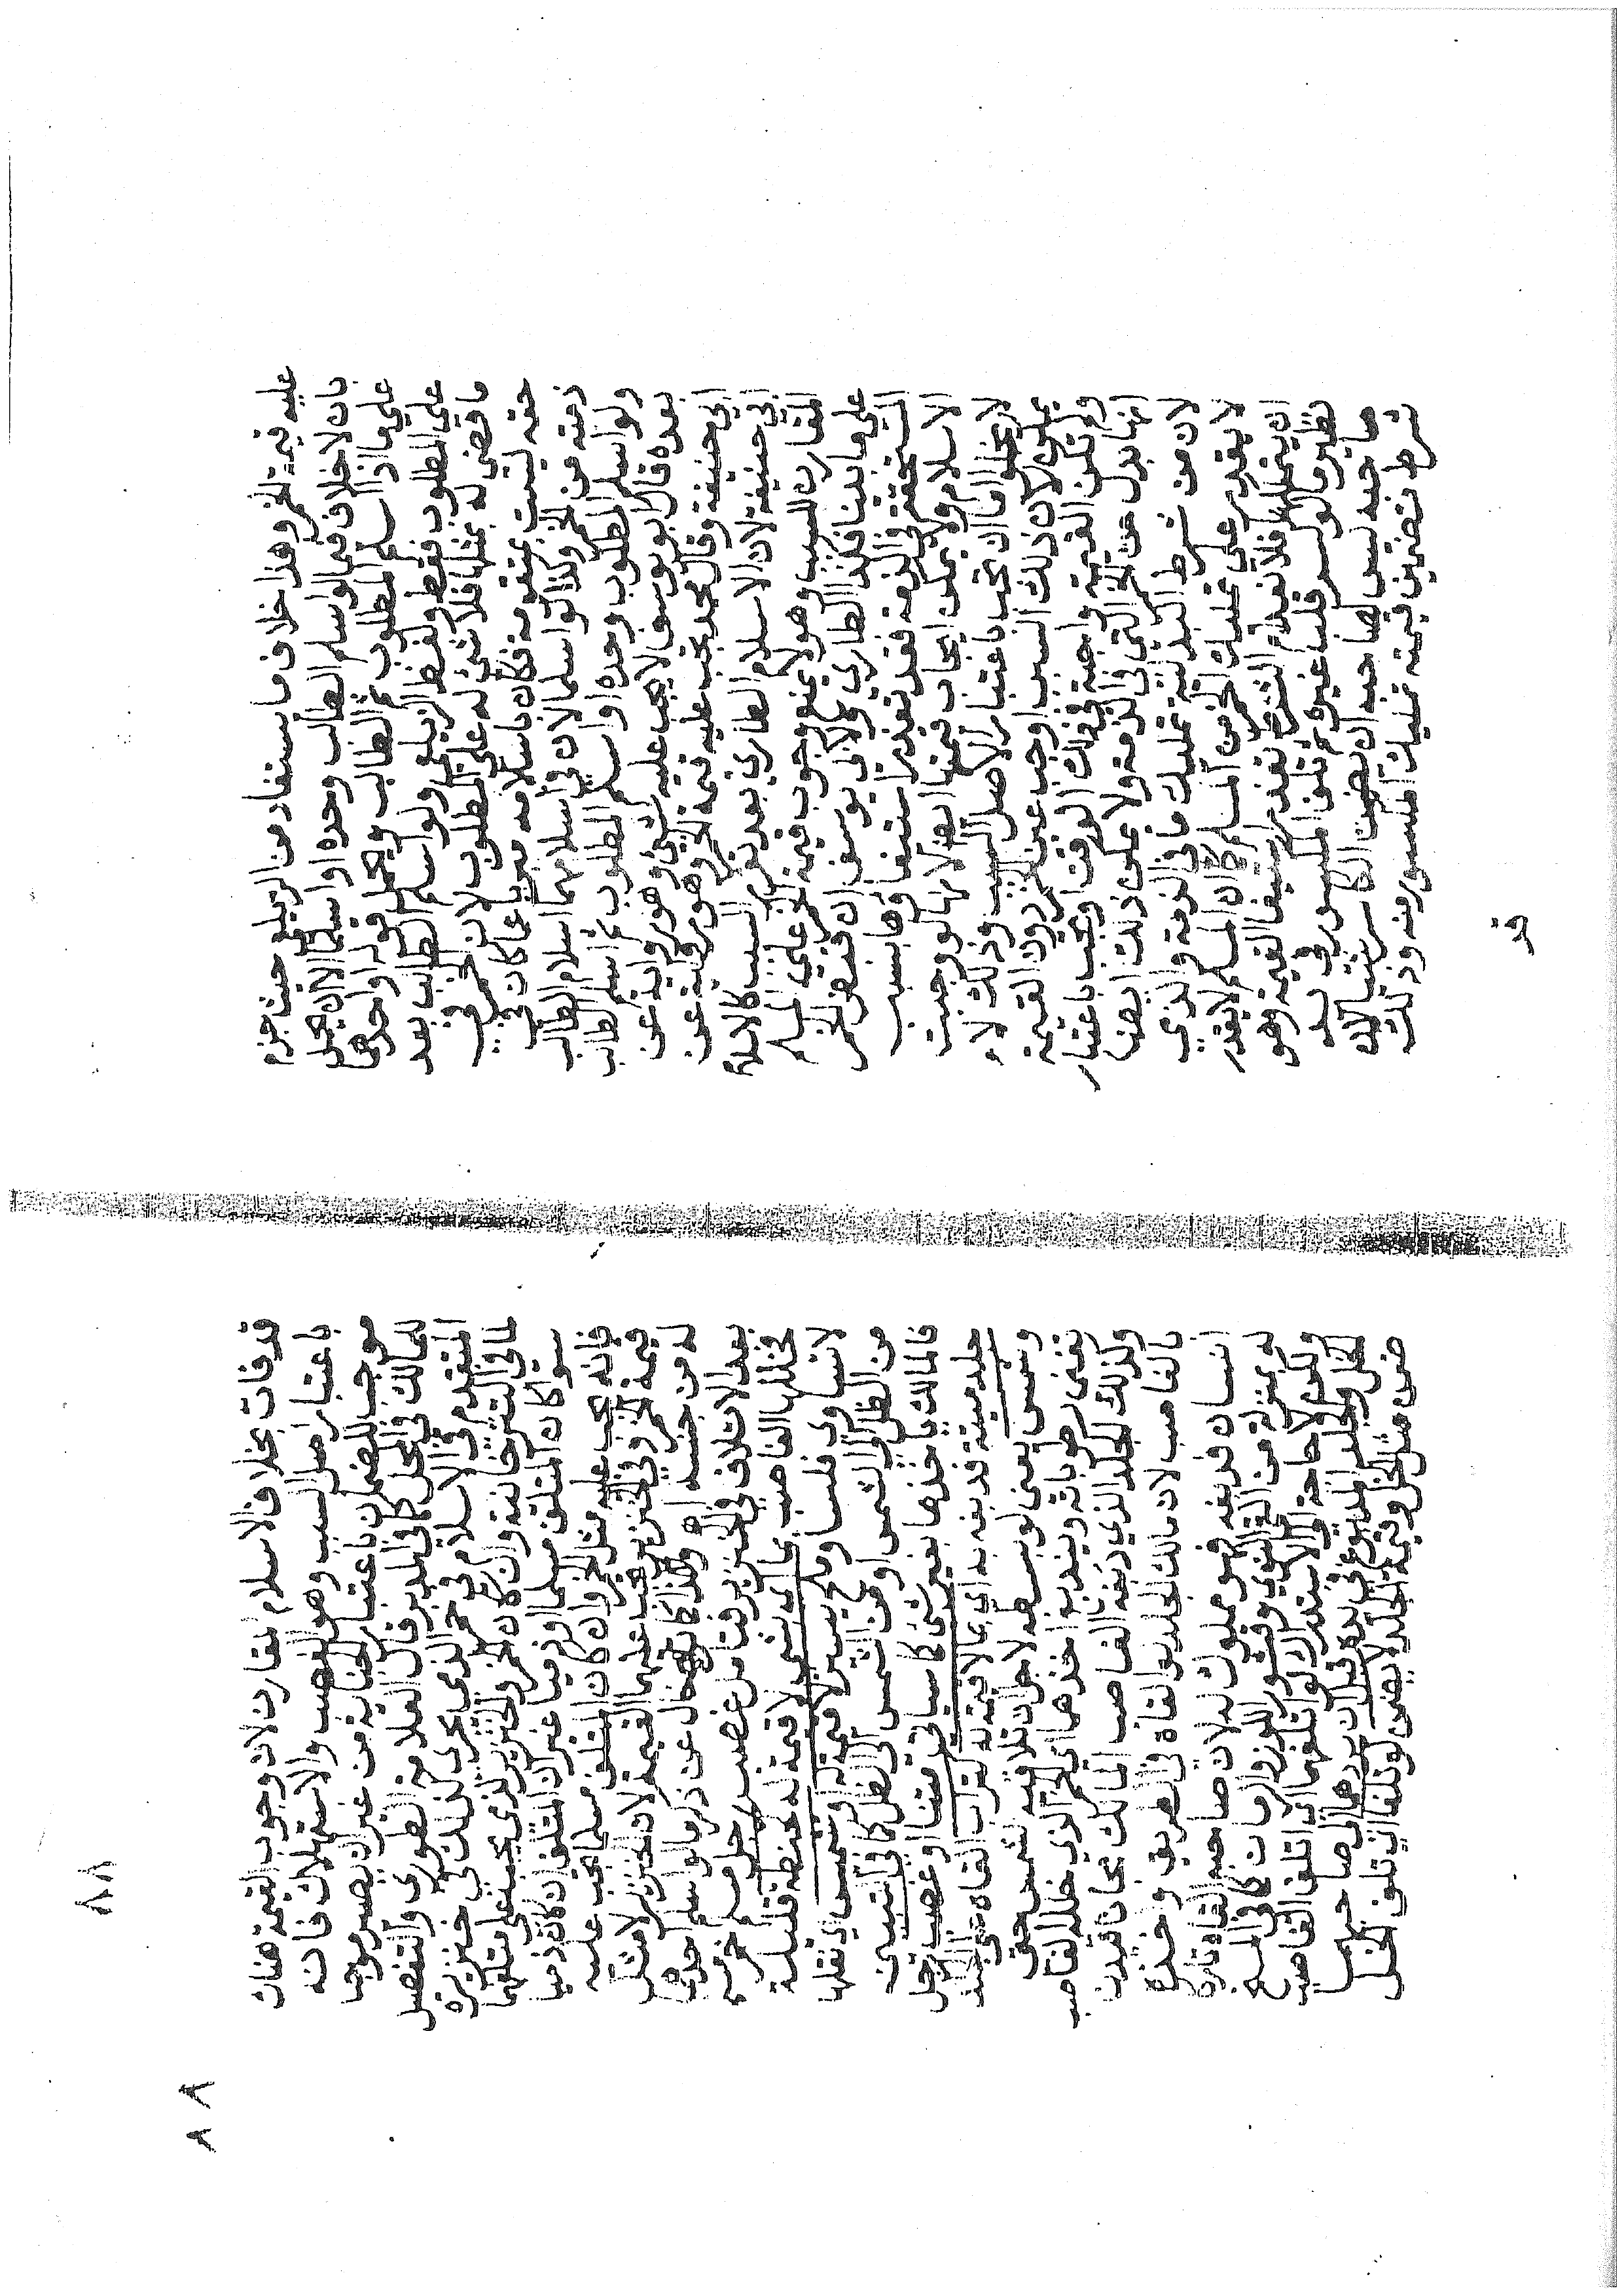 عليه قيمة الخمر وهذا خلاف ما يستفاد من الزيلعي حيث جزم
بان لا خلاف فيما لو اسلم الطالب وحده او اسلما الا ان يحمل
على ما اذا اسلم المطلوب ثم الطالب ويحمل قوله او احدهما
على المطلوب فقط ولفظ الزيلعي ولو اسلم الطالب بعد
ما قضى له بمثلها فلا شئ له على المطلوب لان الخمر في
حقه ليست بمتقومة فكان باسلامه مبريا عما كان في
ذمته من الخمر وكذا لو اسلما لان في اسلامهما اسلام الطالب
ولو اسلم المطلوب وحده او اسلم المطلوب ثم اسلم الطالب
بعده قال ابو يوسف لا يجب عليه شئ وهو رواية عن
ابي حنيفة وقال محمد يجب عليه قيمة الخمر وهو رواية عن
ابي حنيفة لان الاسلام الطاري بعد تقرر السبب كالاسلام
المقارن للسبب وهو لا يمنع وجوب قيمة الخمر على المسلم
على ما بينا فكذا الطاري ولابي يوسف ان قبض الخمر
المستحقة في الذمة فقد تعذر استيفاؤها بسبب
الاسلام ولا يمكن ايجاب قيمتها ايضا لانها لو وجبت
لا يخلو اما ان تجب باعتبار الاصل السبب وذلك لا
يكون لان ذلك السبب اوجب عين الخمر دون القيمة
ولم تكن القيمة واجبة في ذلك الوقت او تجب باعتبار
انها بدل عن الخمر التي في الذمة ولا يكون ذلك ايضا
لان من شرط البدلية تمليك ما في الذمة والذي
لا يقدر على تمليك الخمر من المسلم لان المسلم لا يقدر
ان يتملكها فلانعدام الشرط تعذر استيفا القيمة وهو
نظير ما لو كسر قلب غيره ثم تلف المكسور في يد
صاحبه ليس لصاحبه ان يضمن الكاسر شيا لان
شرط تضمين قيمته تمليك المكسور منه وذلك
قد
قد فات بخلاف الاسلام المقارن لان وجوب القيمة هناك
باعتبار اصل السبب وهو الغصب والاستهلاك فانه
موجب للضمان باعتبار الجناية من غير ان يصير موجبا
للمالك في المحل كما في المدبر قال العلامة الطوري والتفصيل
المتقدم في الاسلام في خمر الذمي يجري كذلك في خنزيره
لما في التترخانية وان كان الخمر والخنزير لذمي يجب على متلفهما
سوا كان المتلف مسلما او ذميا غير ان المتلف ان كان ذميا
فانه يجب عليه مثل الخمر وان كان المتلف مسلما تجب عليه
قيمة الخمر وفي الخنزير تجب عليهما القيمة لان الخنزير لا مثل
له من جنسه اه وهذا كما ترى خال عن ذكر ما لو اسلم احدهما
بعد الاتلاف في الخنزير فتامل غصب رجل مسلم خمر مسلم
فخللها الغاصب بما اي بشئ لا قيمة له كحنطة قليلة
لا تساوي فلسا وملح يسير لا قيمة له وشمس اي نقلها
من الظل الى الشمس او من الشمس الى الظل كما في التبيين
فالمالك ياخذها بغير شئ كما سياتي متنا او غصب رجل
جلد ميتة فدبغه به اي بما لا قيمة له كتراب القاه على الجلد
وشمس يعني لو بسطه لاجل ان تلاقيه الشمس حتى
تفنى رطوباته ويندبغ اخذهما اي الخمر الذي خلله الغاصب
وكذلك الجلد الذي دبغه الغاصب المالك مجانا قيدنا
بالغاصب لان مالك الجلد لو القاه في الطريق واخذه
انسان فدبغه فهو مملوك له لان صاحبه القاه تاركا
له بمنزلة من القى النوى وقشور اللوز والرمان كما في المنبع
ولكن لا حاجة الى الاستدراك لو اتلفهما اي اتلف الغاصب
الخل والجلد المدبوغ في يده قبل ان يردهما الى صاحبهما
ضمن مثل الخل وقيمة الجلد لا يضمن لو تلفا اي تلف الخل
٨٨